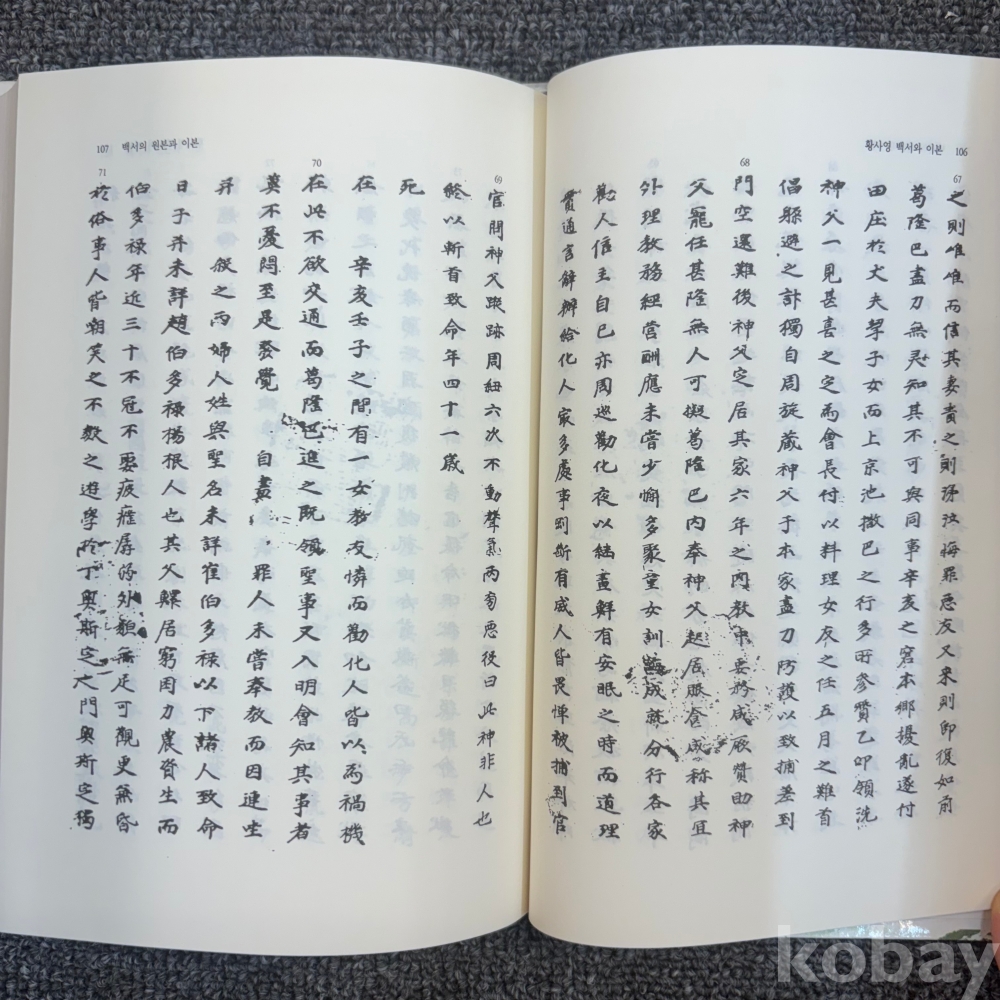 황사영 백서와 이본 106
67
之則唯唯而信其妻責之則涕泣悔罪惡友又來則卽復如前
葛隆巴盡力無灵知其不可與同事辛亥之窘本鄉擾亂遂付
田庄於丈夫挈子女而上京池撒巴之行多所參贊乙卯領洗
神父一見甚喜之定為會長付以料理女友之任五月之難首
倡躲避之計獨自周旋藏神父于本家盡力防護以致捕差到
68
門空還難後神父定居其家六年之內教中要務咸厥贊助神
父寵任甚隆無人可擬葛隆巴內奉神父起居服食咸称其宜
外理教務經營酬應未嘗少懈多聚童女訓誨成就分行各家
勸人信主自己亦周巡勸化夜以継晝鮮有安眠之時而道理
貫通言辞辦給化人家多處事剛断有威人皆畏憚被捕到官
107 백서의 원본과 이본
69
官問神父踪跡周紐六次不動聲氣兩旁惡役曰此神非人也
終以斬首致命年四十一歲
死
在 辛亥壬子之間有一女教友憐而勸化人皆以為禍機
70
在此不欲交通而葛隆巴進之既領聖事又入明會知其事者
莫不憂悶至是發覺 自盡 罪人未嘗奉教而因連坐
并 殺之两婦人姓與聖名未詳崔伯多祿以下諸人致命
日子并未詳趙伯多祿楊根人也其父鰥居窮困力農資生而
伯多祿年近三十不冠不娶疲癃孱弱外貌無足可觀更無昏
71
於俗事人皆嘲笑之不数之遊學於丁奥斯定之門奥斯定独
kobay